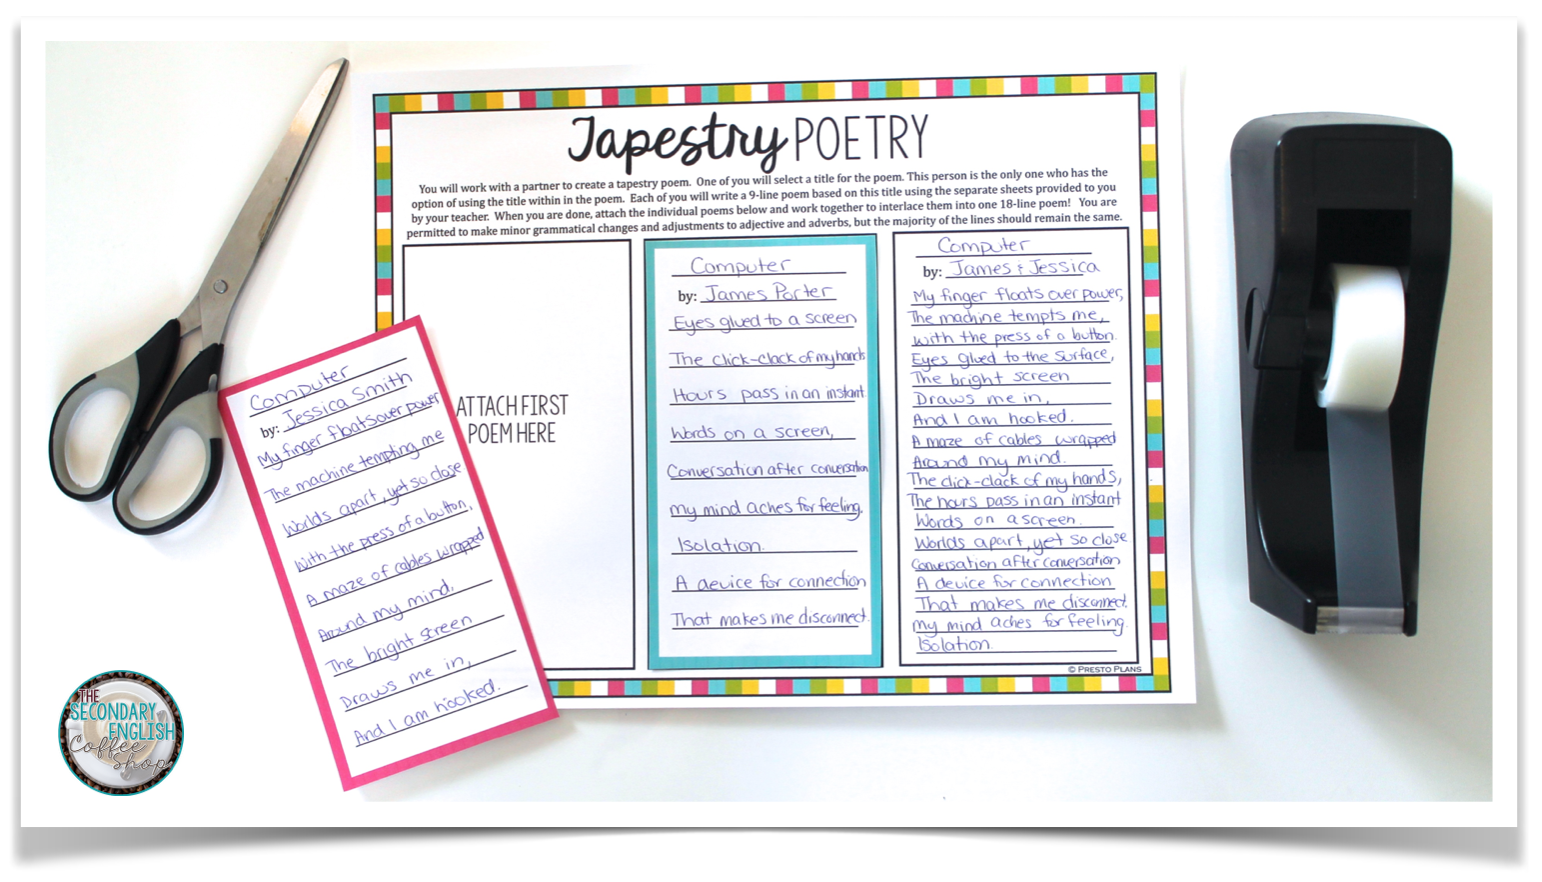 Tapestry POETRY
You will work with a partner to create a tapestry poem. One of you will select a title for the poem. This person is the only one who has the
option of using the title within in the poem. Each of you will write a 9-line poem based on this title using the separate sheets provided to you
by your teacher. When you are done, attach the individual poems below and work together to interlace them into one 18-line poem! You are
permitted to make minor grammatical changes and adjustments to adjective and adverbs, but the majority of the lines should remain the same.
Computer
by: Jessica Smith
My finger floats over power
The machine tempting me
Worlds apart, yet so close
With the press of a button,
A maze of cables wrapped
Around my mind.
The bright screen
Draws me in,
And I am hooked.
ATTACH FIRST
POEM HERE
Computer
by: James Porter
Eyes glued to a screen
The click-clack of my hands
Hours pass in an instant
Words on a screen,
Conversation after conversation
my mind aches for feeling.
Isolation.
A device for connection
That makes me disconnect.
Computer
by: James & Jessica
My finger floats over power,
The machine tempts me,
with the press of a button.
Eyes glued to the surface,
The bright screen
Draws me in,
And I am hooked.
A maze of cables wrapped
Around my mind.
The click-clack of my hands,
The hours pass in an instant
Words on a screen.
Worlds apart, yet so close
Conversation after conversation
A device for connection
That makes me disconnect.
My mind aches for feeling.
Isolation.
© PRESTO PLANS
THE
SECONDARY
ENGLISH
Coffee
Shop